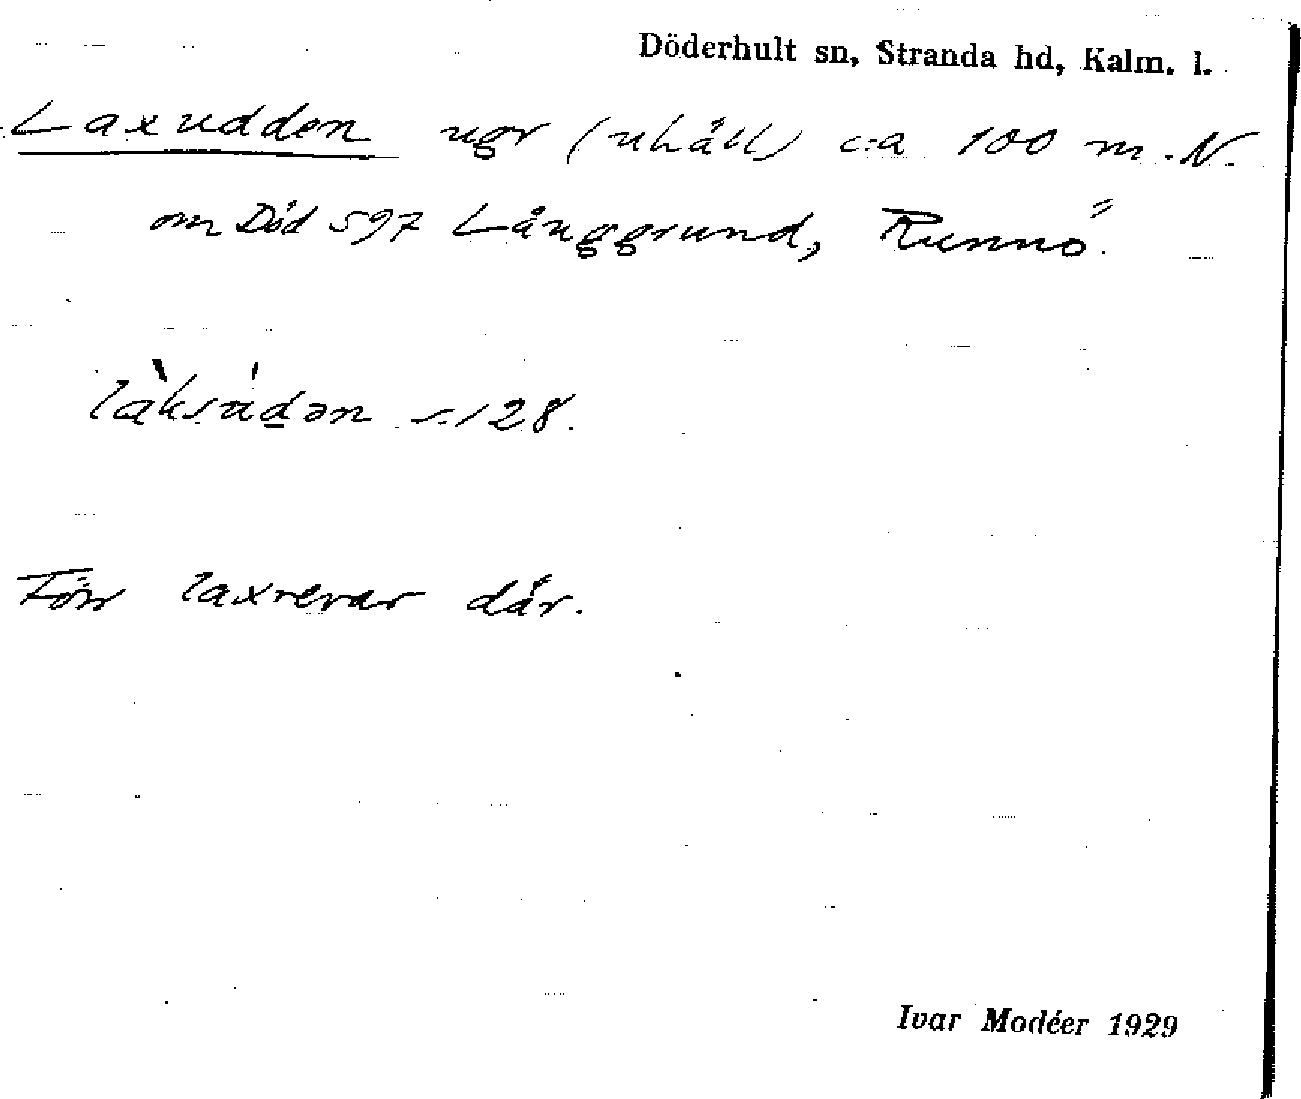 Döderhult sn, Stranda hd, Kalm. l.
Laxudden ugr (uhåll) c:a 100 m. N.
om Död 597 Långgrund, Runnö.
làksùdən s. 128.
Förr laxrevar där.
Ivar Modéer 1929